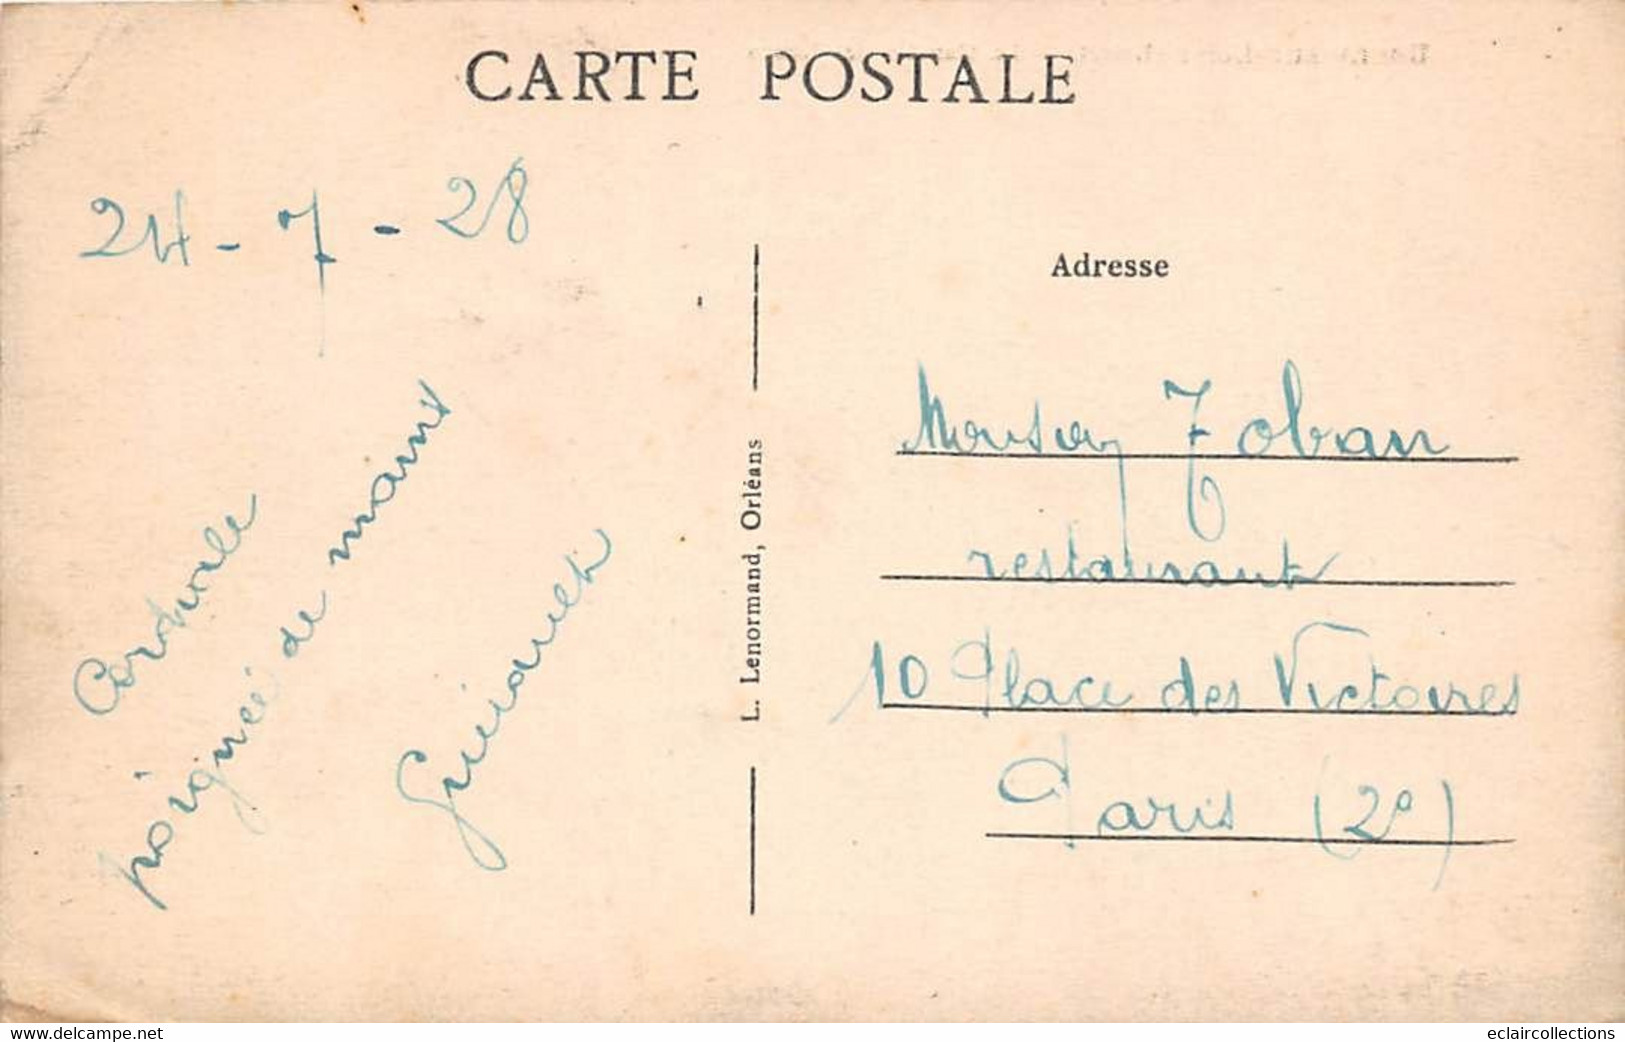 CARTE POSTALE
24 - 7 - 28
Cordiale
poignée de mains
L. Lenormand, Orléans
Adresse
restaurant
10 Place des Victoires
Paris (2e)
www.delcampe.net
eclaircollections